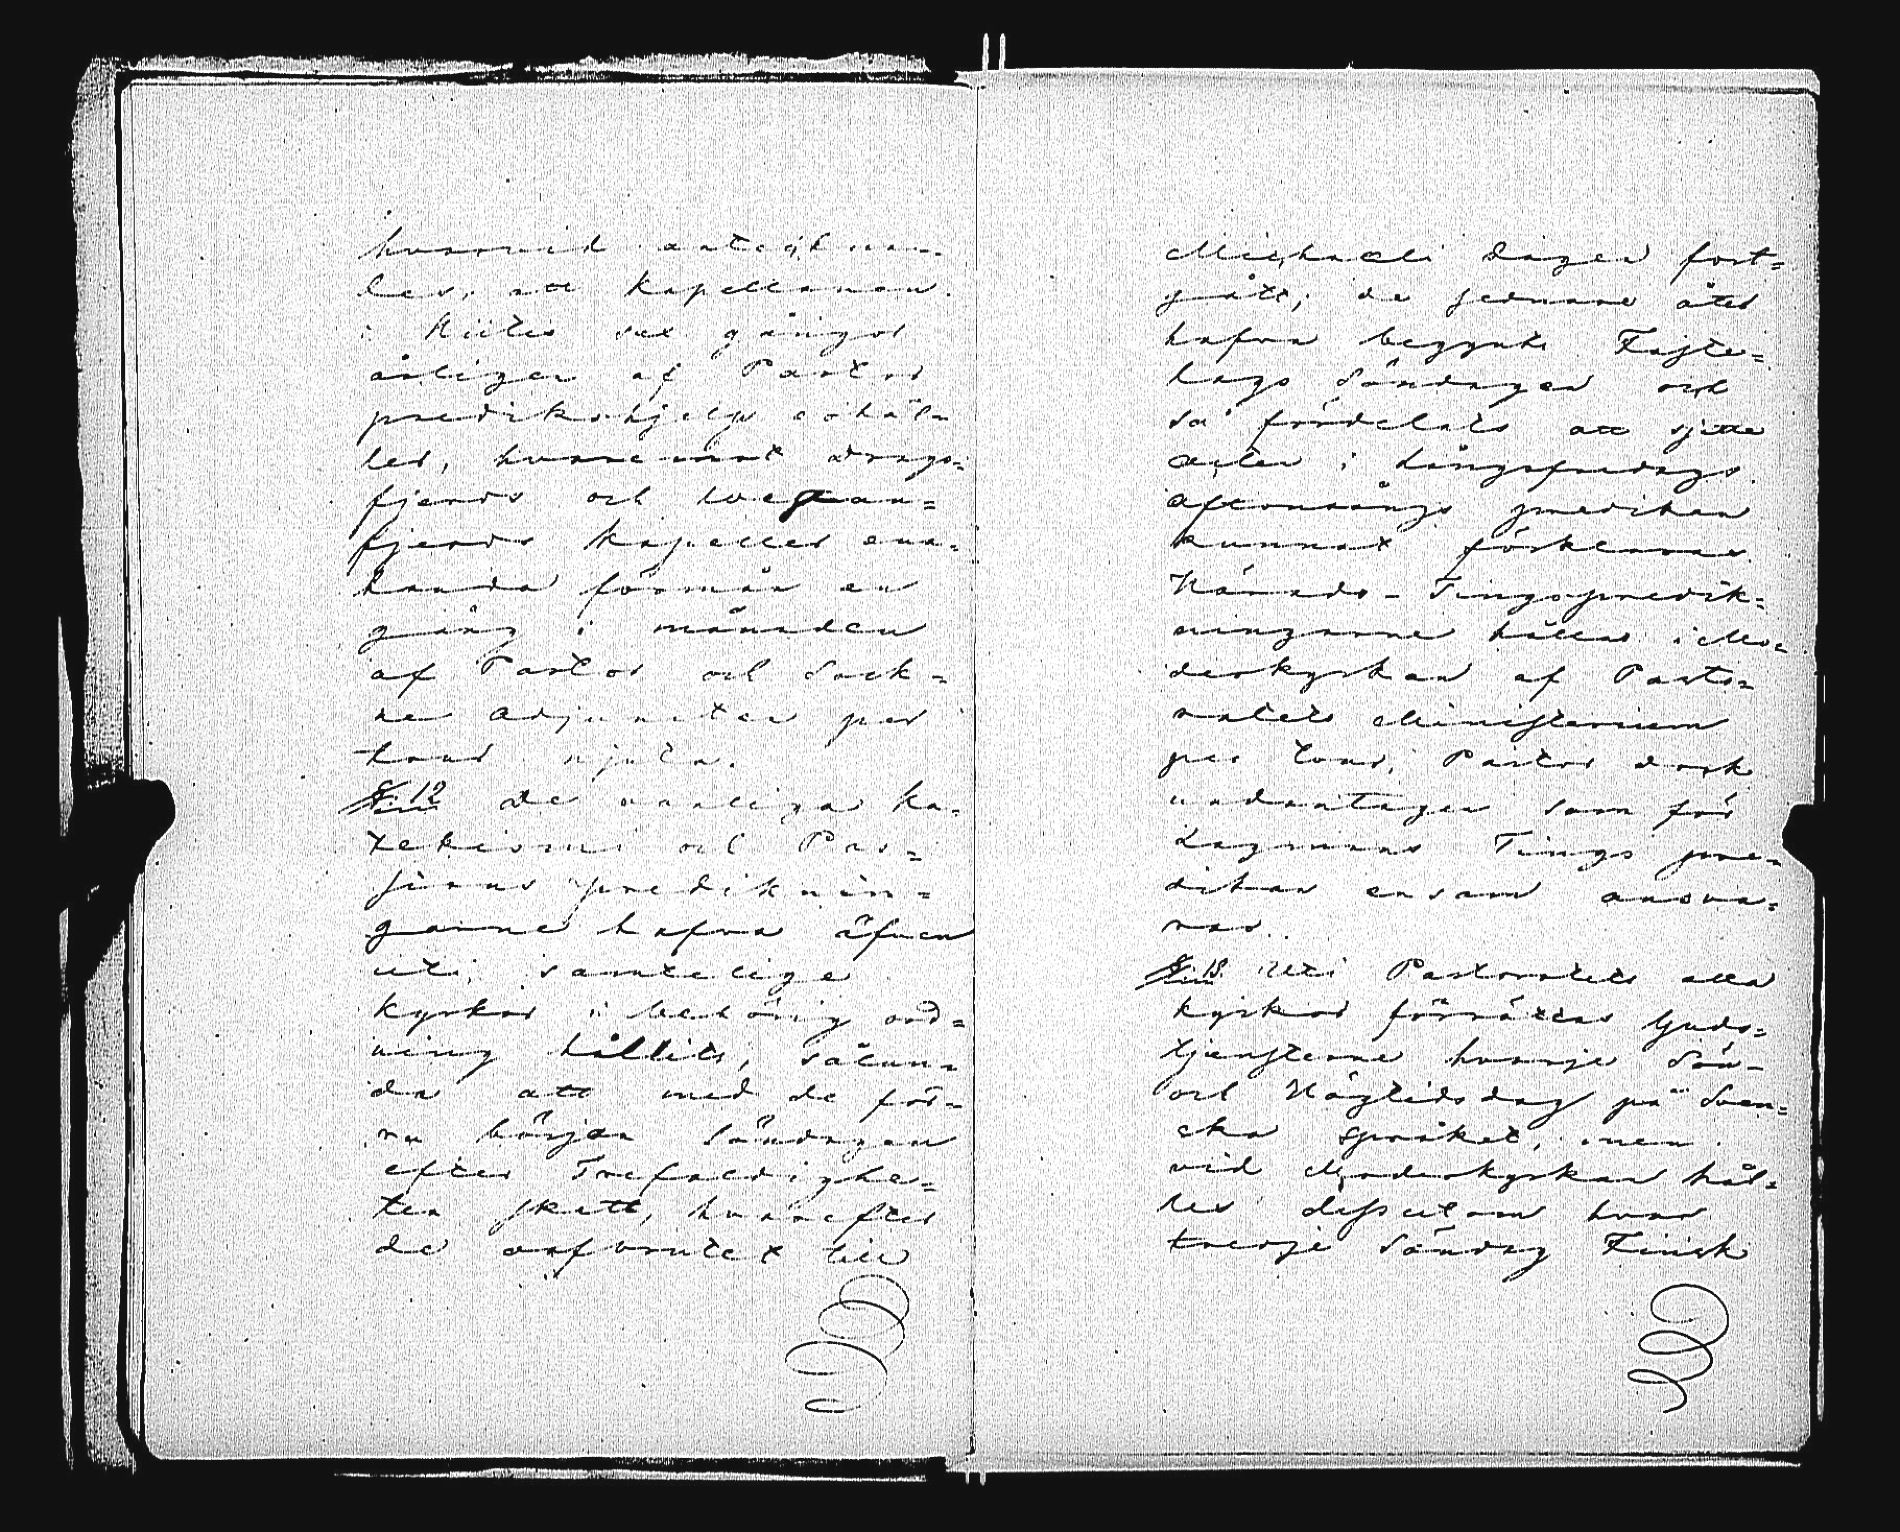 hvarvid anteckna=
des, att Kapellanen
i Hiitis sex gångor
årligen af Pastor
predikohjelp erhål=
ler, hvaremot Drags=
fjerds och Westan=
fjerds Kapeller ena=
handa förmån en
gång i månaden
af Pastor och Sock=
ne Adjuncten per
tour njuta.
§. 12 De vanliga Ka=
tekismi och Pas=
sions prediknin=
garne hafva äfven
uti samtelige
kyrkor i behörig ord=
ning hållits, sålun=
da att med de för=
ra början Söndagen
efter Trefaldighe=
ten skett, hvarefter
de oafbrutet till
Michaeli Dagen fort=
gått; de sednare åter
hafva begynts Faste=
lags Söndagen och
så fördelats att sjette
acten i Långfredags
aftonsångs predikan
kunnat förklaras.
Härads-Tingspredik=
ningarne hållas i Mo=
derkyrkan af Pasto=
ratets Ministerium
per tour, Pastor dock
undantagen som för
Lagmans Tings pre=
dikan ensam ansva=
rar.
§. 13. Uti Pastoratets alla
kyrkor förrättas Guds=
tjensterne hvarje Sön-
och Högtidsdag på Sven=
ska språket, men
vid Moderkyrkan hål=
les dessutom hvar
tredje Söndag Finsk